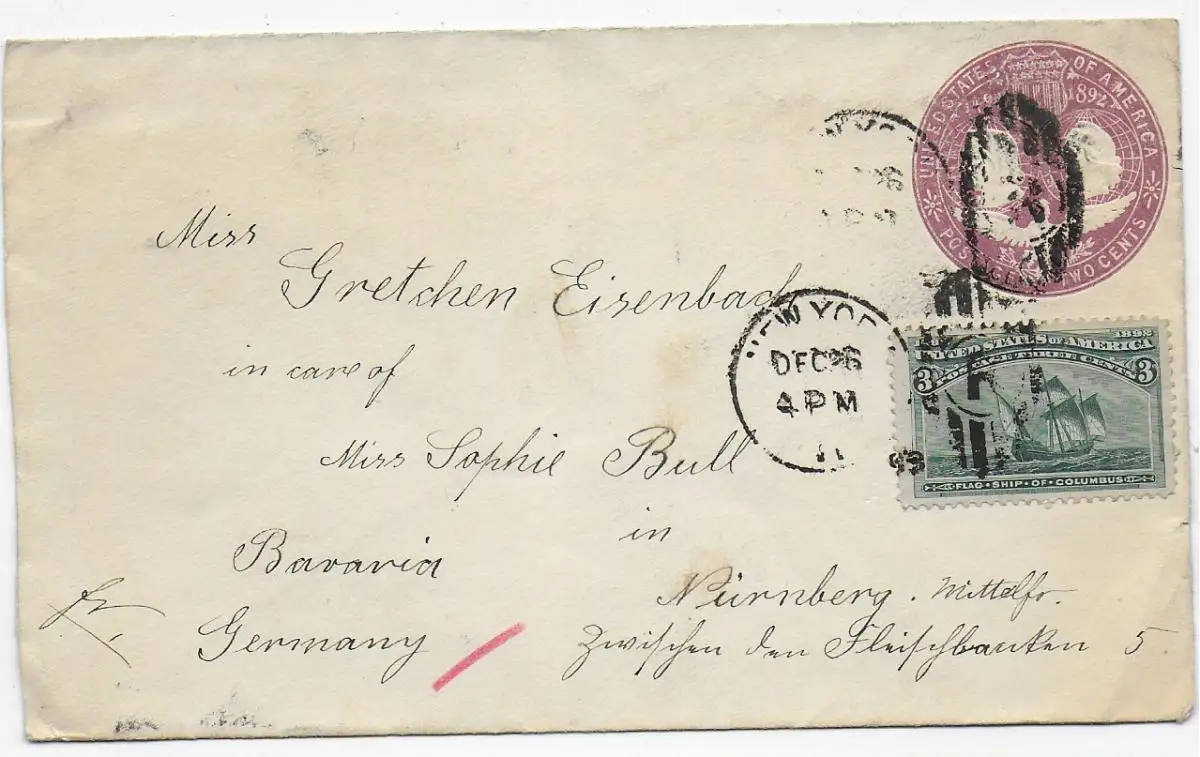 UNITED STATES OF AMERICA
1892
POSTAGE TWO CENTS
Miss
Gretchen Eisenbach
in care of
Miss Sophie Bull
in
Bavaria
Nürnberg. Mittelfr.
Germany
Zwischen den Fleischbanken 5
NEW YORK
DEC 26
4 PM
93
1892
UNITED STATES OF AMERICA
POSTAGE THREE CENTS
3 3
FLAG · SHIP · OF · COLUMBUS